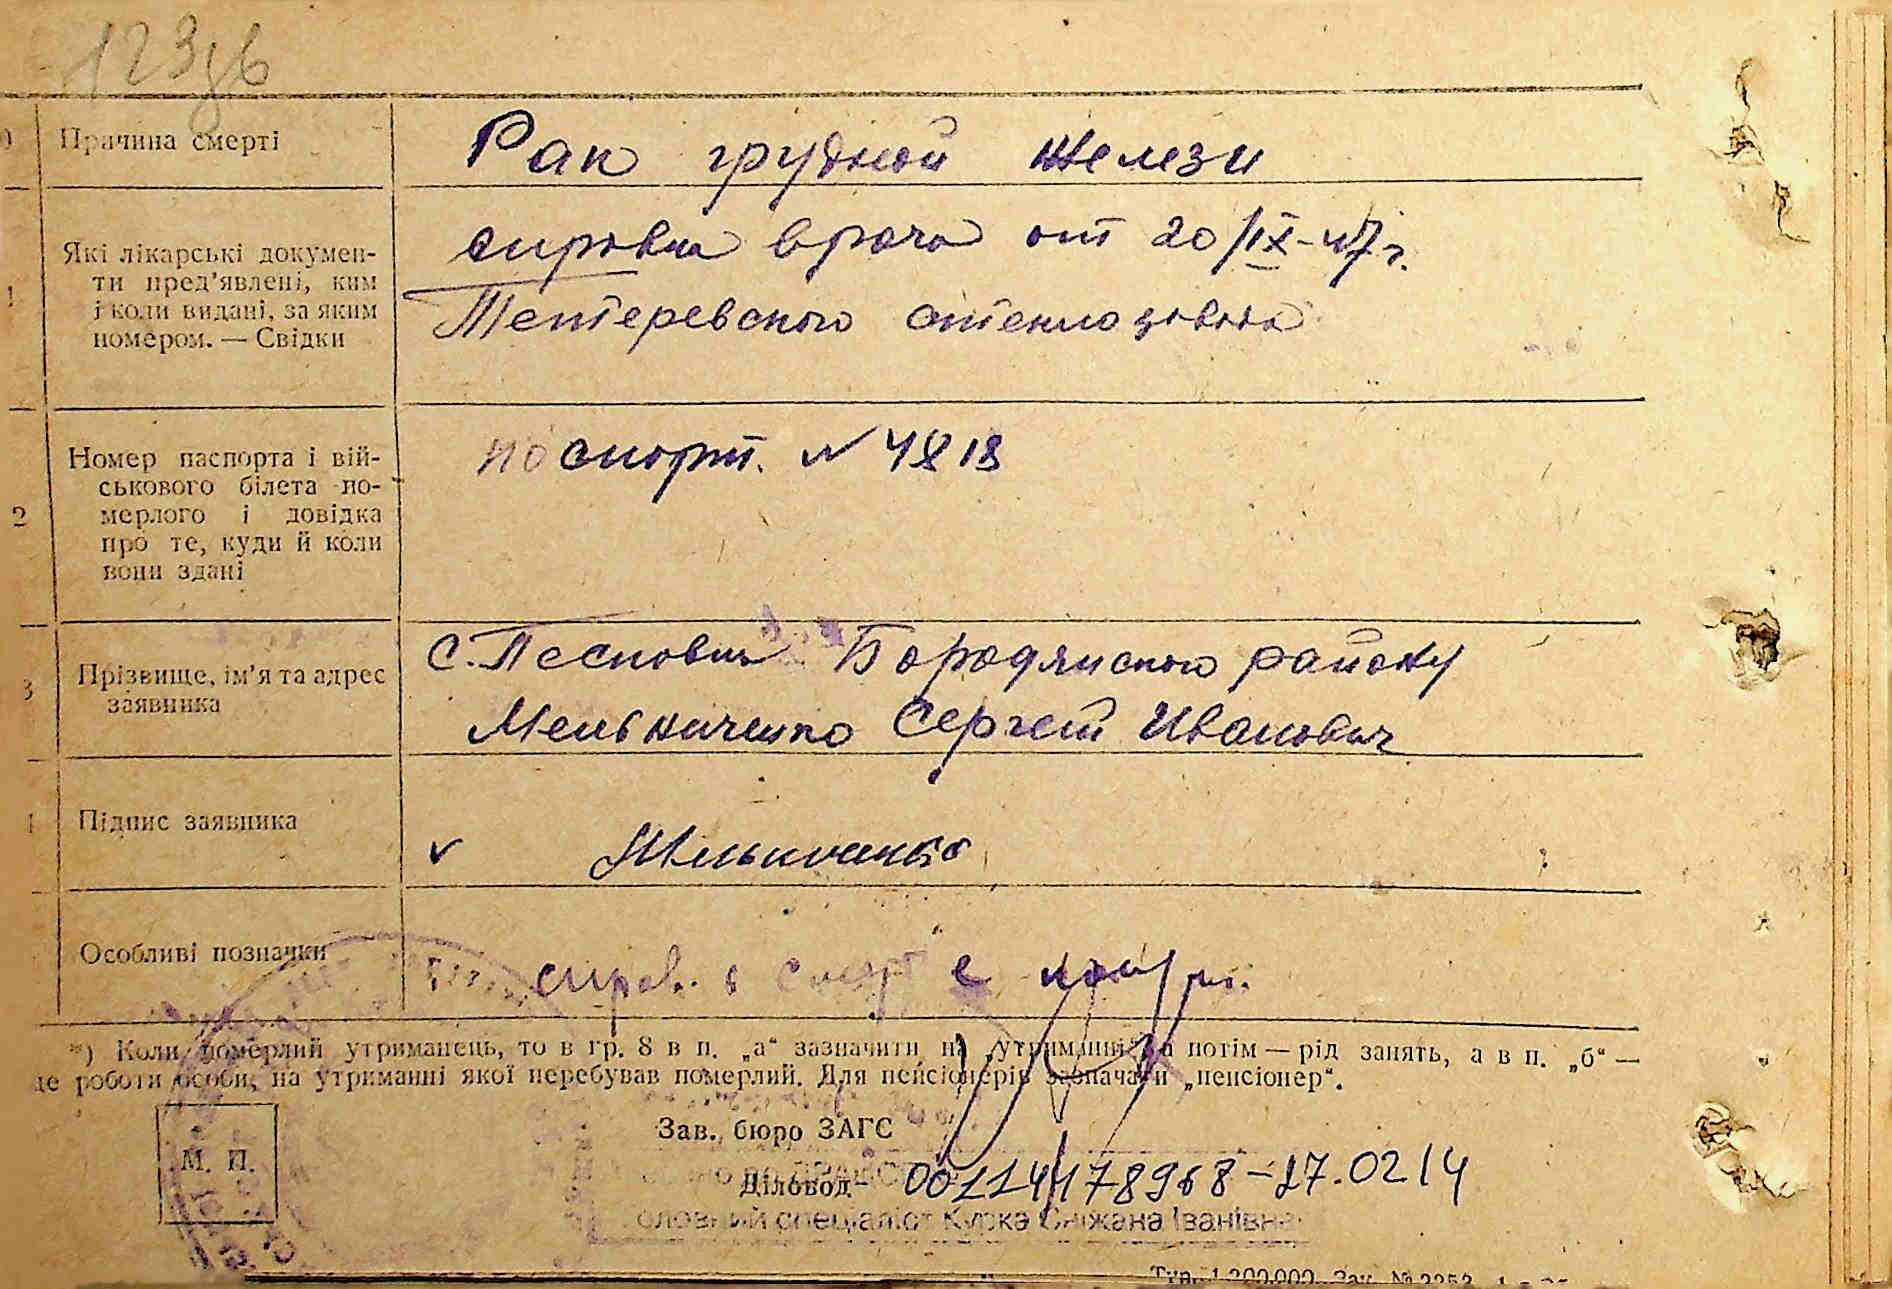 123
Причина смерті
Рак грудной желези
Які лікарські докумен-
ти пред'явлені, ким
і коли видані, за яким
номером. — Свідки
1
справка врача от 20/IX-47г.
Тетеревского стеклозавода
Номер паспорта і вій-
ськового білета по-
мерлого і довідка
про те, куди й коли
вони здані
2
паспорт. N 4818
Прізвище, ім'я та адрес
заявника
3
с. Песковка Бородянского району
Мельниченко Сергей Иванович
Підпис заявника
Мельниченко
Особливі позначки
справ. о смерт
*) Коли померлий утриманець, то в гр. 8 в п. „а“ зазначити на „утриманні“, а потім — рід занять, а в п. „б“ —
де роботи особи, на утриманні якої перебував померлий. Для пенсіонерів зазначати „пенсіонер“.
Зав. бюро ЗАГС
М. П.
Діловод
00114178968-27.0214
оловний спеціаліст Курка Сніжана Іванівна
Тип. 1.200.000. Зак. №